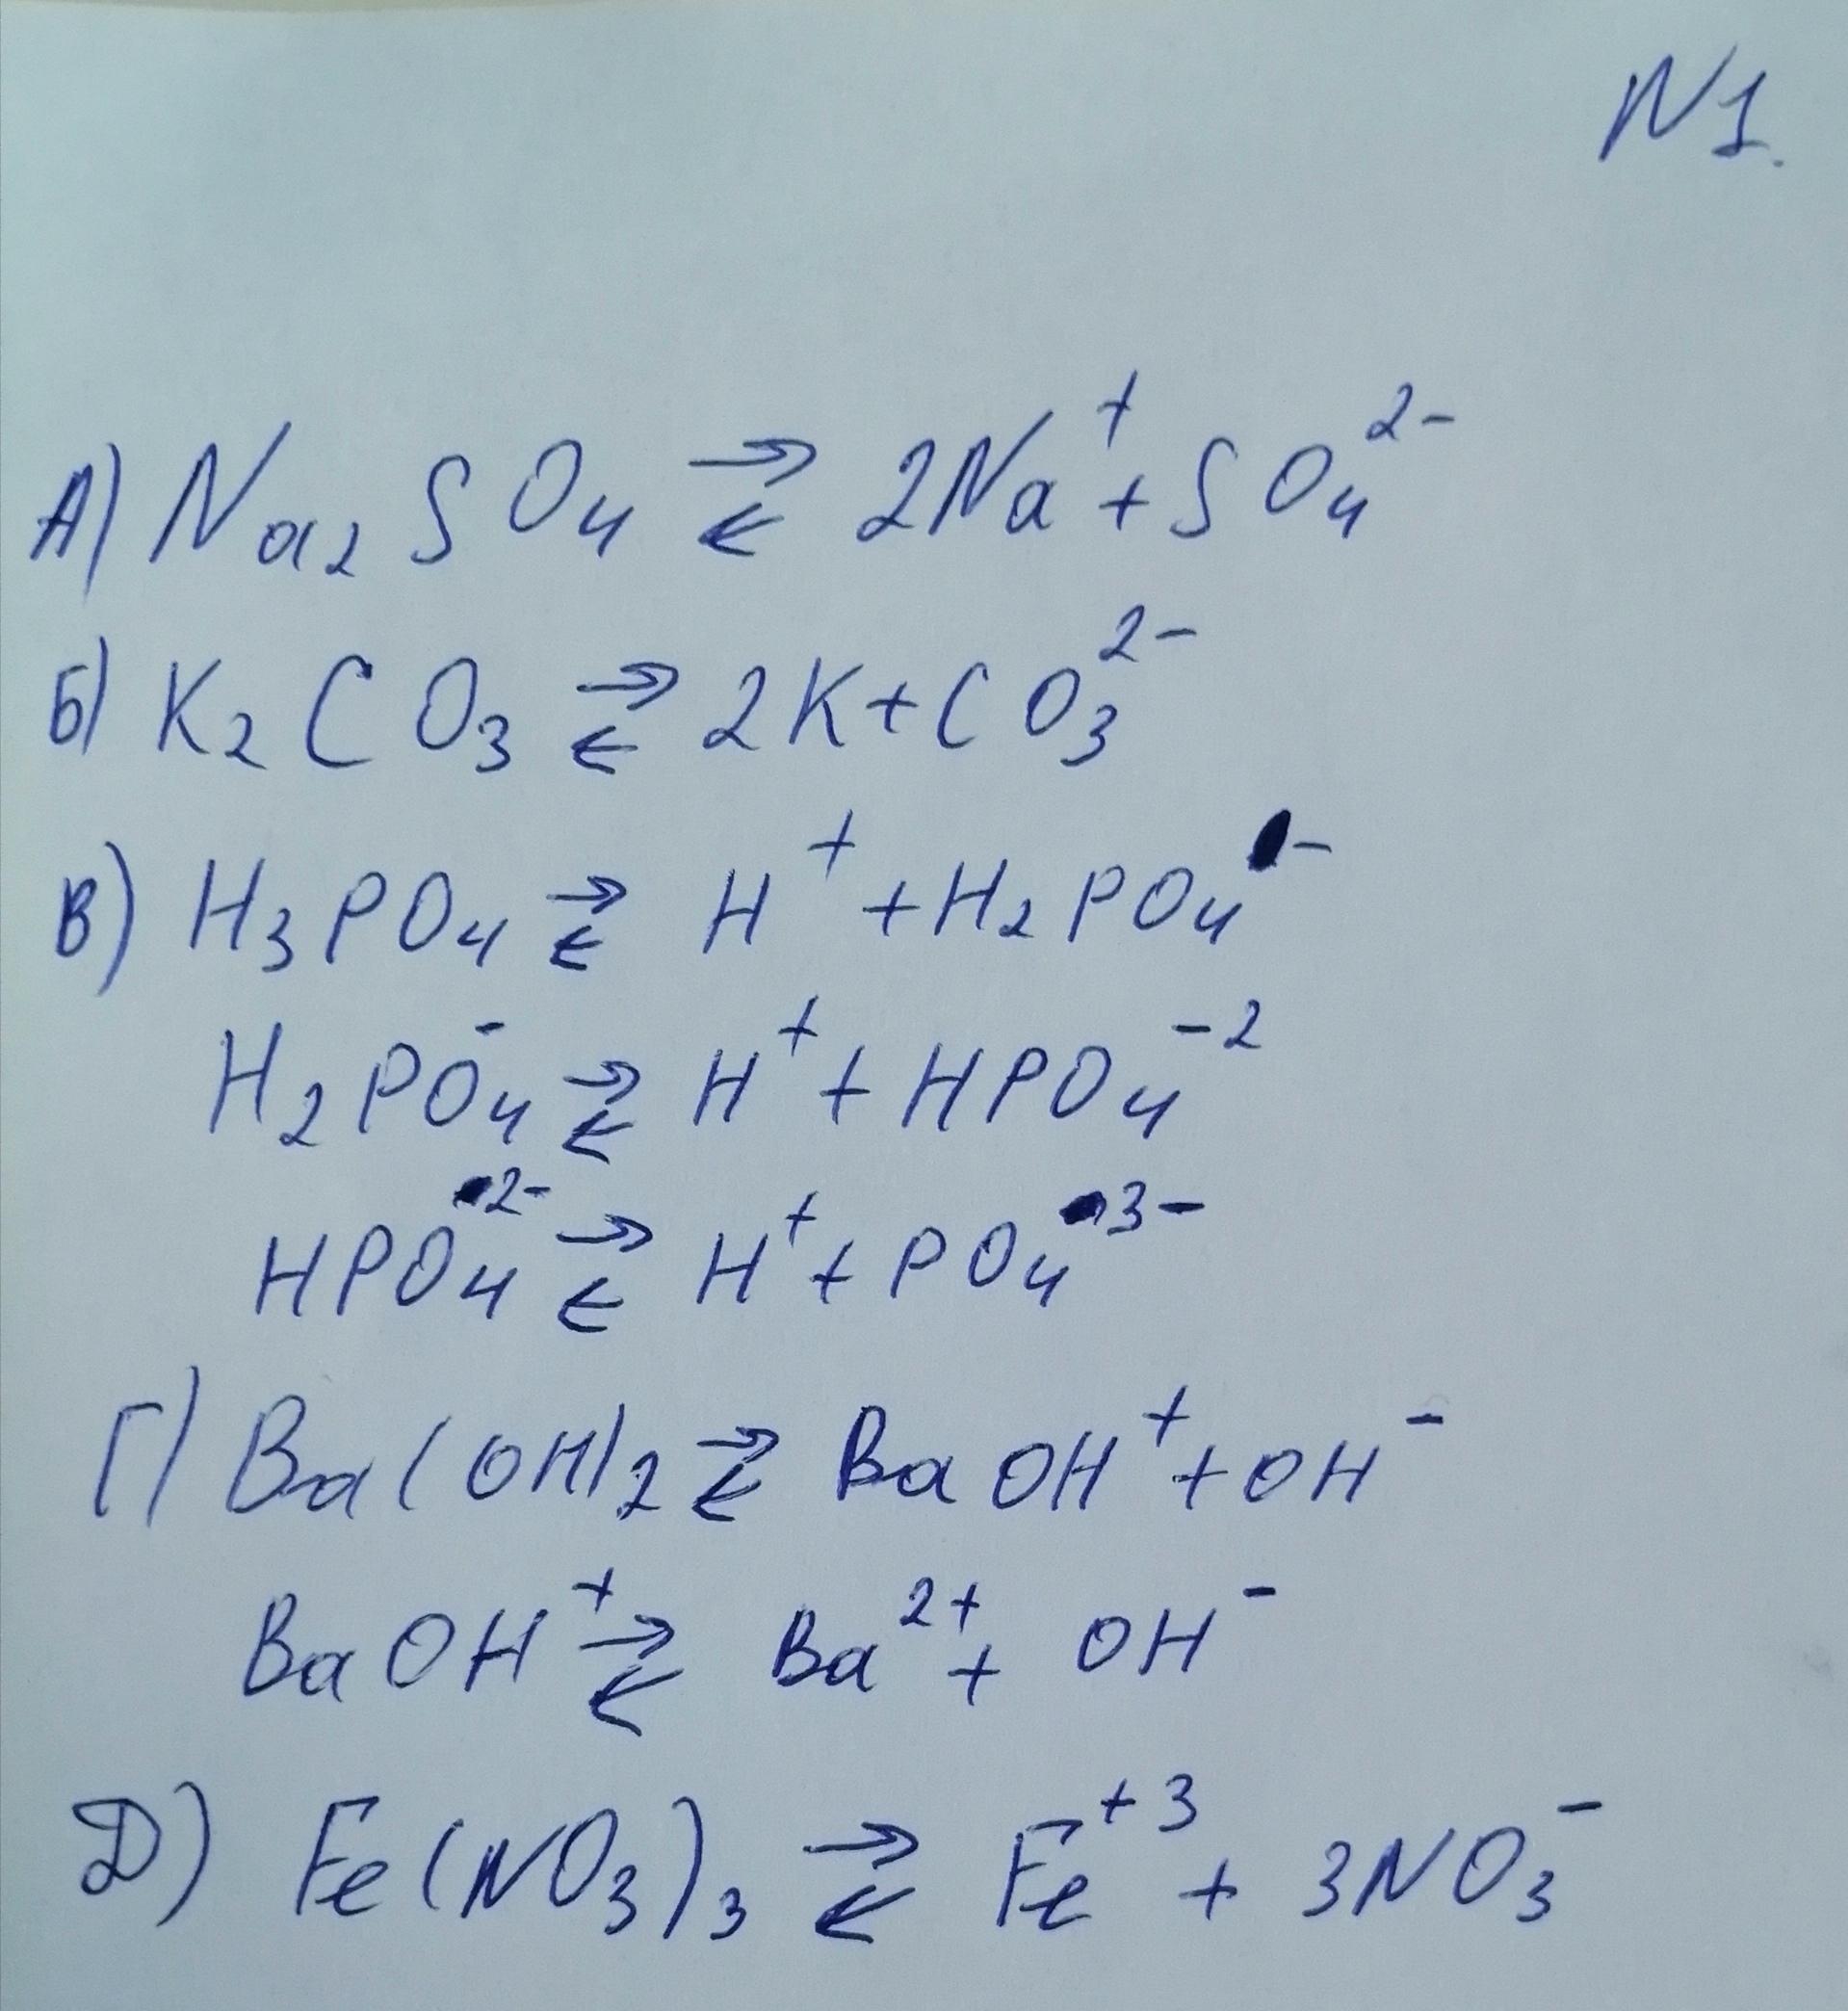 N1.
А) Na₂SO₄ ⇄ 2Na⁺ + SO₄²⁻
Б) K₂CO₃ ⇄ 2K + CO₃²⁻
В) H₃PO₄ ⇄ H⁺ + H₂PO₄⁻
H₂PO₄⁻ ⇄ H⁺ + HPO₄⁻²
HPO₄²⁻ ⇄ H⁺ + PO₄³⁻
Г) Ba(OH)₂ ⇄ BaOH⁺ + OH⁻
BaOH⁺ ⇄ Ba²⁺ + OH⁻
Д) Fe(NO₃)₃ ⇄ Fe⁺³ + 3NO₃⁻